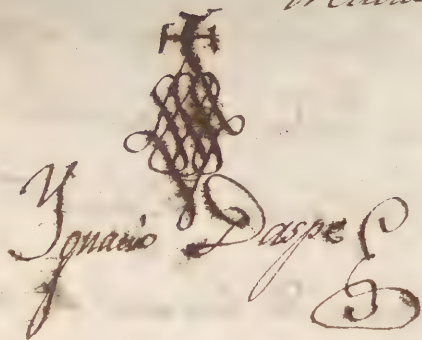 Ygnacio Daspe